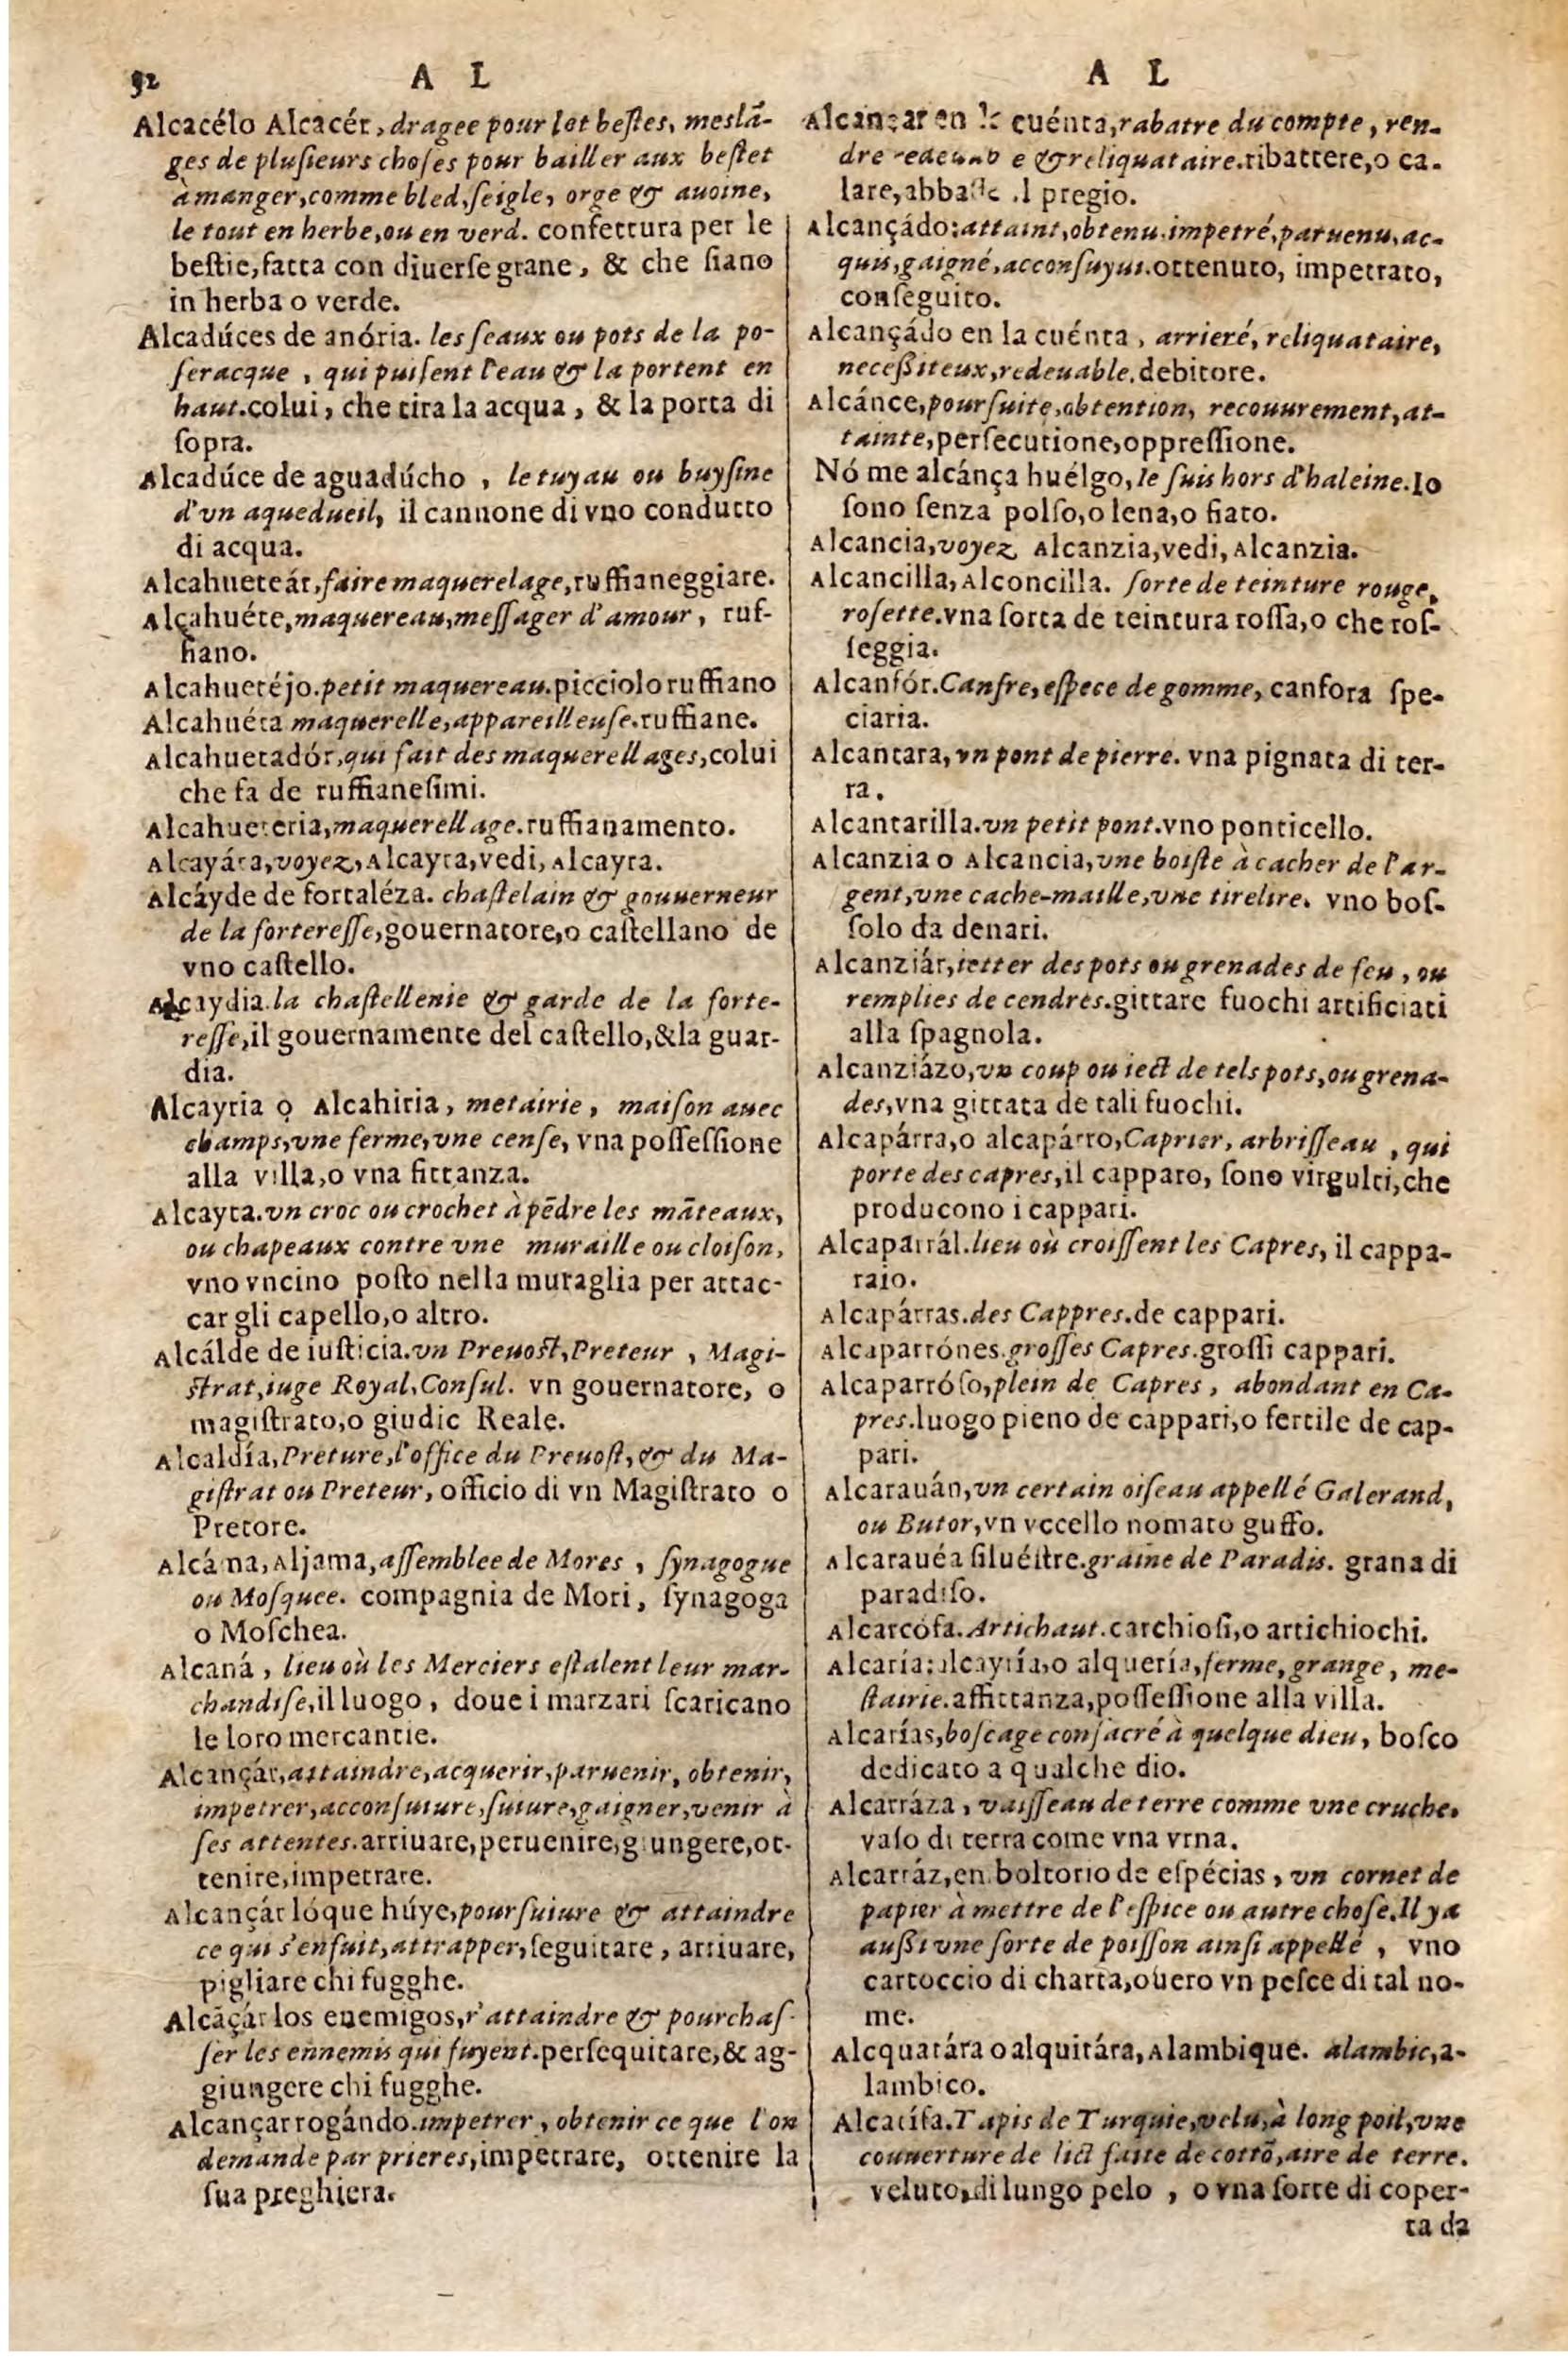 92
A L
Alcacélo Alcacér, dragee pour lot beſtes, meslā-
ges de pluſieurs choſes pour bailler aux beſtet
à manger, comme bled, ſeigle, orge & auoine,
le tout en herbe, ou en verd. confettura per le
beſtie, fatta con diuerſe grane, & che ſiano
in herba o verde.
Alcadúces de anória. les ſeaux ou pots de la po-
ſeracque, qui puiſent l'eau & la portent en
haut. colui, che tira la acqua, & la porta di
ſopra.
Alcadúce de aguadúcho, le tuyau ou buyſine
d'vn aquedueil, il cannone di vno condutto
di acqua.
Alcahueteár, faire maquerelage, ruffianeggiare.
Alcahuéte, maquereau, meſſager d'amour, ruf-
fiano.
Alcahuetéjo. petit maquereau. picciolo ruffiano
Alcahuéta maquerelle, appareilleuſe. ruffiane.
Alcahuetadór, qui fait des maquerellages, colui
che fa de ruffianeſimi.
Alcahueteria, maquerellage. ruffianamento.
Alcayáta, voyez, Alcayta, vedi, Alcayta.
Alcáyde de fortaléza. chaſtelain & gouuerneur
de la fortereſſe, gouernatore, o caſtellano de
vno caſtello.
Alcaydia. la chaſtellenie & garde de la forte-
reſſe, il gouernamente del caſtello, & la guar-
dia.
Alcayria o Alcahiria, metairie, maiſon auec
champs, vne ferme, vne cenſe, vna poſſeſſione
alla villa, o vna fittanza.
Alcayta. vn croc ou crochet à pēdre les māteaux,
ou chapeaux contre vne muraille ou cloiſon,
vno vncino poſto nella muraglia per attac-
car gli capello, o altro.
Alcálde de iuſticia. vn Preuoſt, Preteur, Magi-
ſtrat, iuge Royal, Conſul. vn gouernatore, o
magiſtrato, o giudic Reale.
Alcaldía, Preture, l'office du Preuoſt, & du Ma-
giſtrat ou Preteur, officio di vn Magiſtrato o
Pretore.
Alcáma, Aljama, aſſemblee de Mores, ſynagogue
ou Moſquee. compagnia de Mori, ſynagoga
o Moſchea.
Alcaná, lieu où les Merciers eſtalent leur mar-
chandiſe, il luogo, doue i marzari ſcaricano
le loro mercantie.
Alcançár, attaindre, acquerir, paruenir, obtenir,
impetrer, acconſuiure, ſuiure, gaigner, venir à
ſes attentes. arriuare, peruenire, giungere, ot-
tenire, impetrare.
Alcançár lóque húye, pourſuiure & attaindre
ce qui s'enſuit, attrapper, ſeguitare, arriuare,
pigliare chi fugghe.
Alcāçár los enemigos, r'attaindre & pourchaſ-
ſer les ennemis qui fuyent. perſequitare, & ag-
giungere chi fugghe.
Alcançar rogándo. impetrer, obtenir ce que l'on
demande par prieres, impetrare, ottenire la
ſua preghiera.
A L
Alcançar en la cuénta, rabatre du compte, ren-
dre e & reliquataire. ribattere, o ca-
lare, pregio.
Alcançádo: attaint, obtenu, impetré, paruenu, ac-
quis, gaigné, acconſuyui. ottenuto, impetrato,
conſeguito.
Alcançádo en la cuénta, arrieré, reliquataire,
neceßiteux, redeuable. debitore.
Alcánce, pourſuite, obtention, recouurement, at-
tainte, perſecutione, oppreſſione.
Nó me alcánça huélgo, Ie ſuis hors d'haleine. Io
ſono ſenza polſo, o lena, o fiato.
Alcancia, voyez Alcanzia, vedi, Alcanzia.
Alcancilla, Alconcilla. ſorte de teinture rouge,
roſette. vna ſorta de teintura roſſa, o che roſ-
ſeggia.
Alcanfór. Canfre, eſpece de gomme, canfora ſpe-
ciaria.
Alcantara, vn pont de pierre. vna pignata di ter-
ra.
Alcantarilla. vn petit pont. vno ponticello.
Alcanzia o Alcancia, vne boiſte à cacher de l'ar-
gent, vne cache-maille, vne tirelire. vno boſ-
ſolo da denari.
Alcanziár, ietter des pots ou grenades de feu, ou
remplies de cendres. gittare fuochi artificiati
alla ſpagnola.
Alcanziázo, vn coup ou iect de tels pots, ou grena-
des, vna gittata de tali fuochi.
Alcapárra, o alcapárro, Caprier, arbriſſeau, qui
porte des capres, il capparo, ſono virgulti, che
producono i cappari.
Alcaparrál. lieu où croiſſent les Capres, il cappa-
raio.
Alcapárras. des Cappres. de cappari.
Alcaparrónes. groſſes Capres. groſſi cappari.
Alcaparróſo, plein de Capres, abondant en Ca-
pres. luogo pieno de cappari, o fertile de cap-
pari.
Alcarauán, vn certain oiſeau appellé Galerand,
ou Butor, vn vccello nomato guffo.
Alcarauéa ſiluéſtre. graine de Paradis. grana di
paradiſo.
Alcarcófa. Artichaut. carchiofi, o artichiochi.
Alcaría: alcayría, o alquería, ferme, grange, me-
ſtairie. affittanza, poſſeſſione alla villa.
Alcarías, boſcage conſacré à quelque dieu, boſco
dedicato a qualche dio.
Alcarráza, vaiſſeau de terre comme vne cruche.
vaſo di terra come vna vrna.
Alcarráz, en boltorio de eſpécias, vn cornet de
papier à mettre de l'eſpice ou autre choſe. Il y a
außi vne ſorte de poiſſon ainſi appellé, vno
cartoccio di charta, overo vn peſce di tal no-
me.
Alcquatára o alquitára, Alambique. alambic, a-
lambico.
Alcatífa. Tapis de Turquie, velu, à long poil, vne
couuerture de lict faite de cottō, aire de terre.
veluto, di lungo pelo, o vna ſorte di coper-
ta da